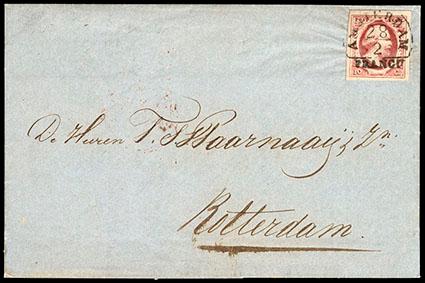 AMSTERDAM
28
2
FRANCO
De Heeren T. S. Paarnaaij & Zn.
Rotterdam.